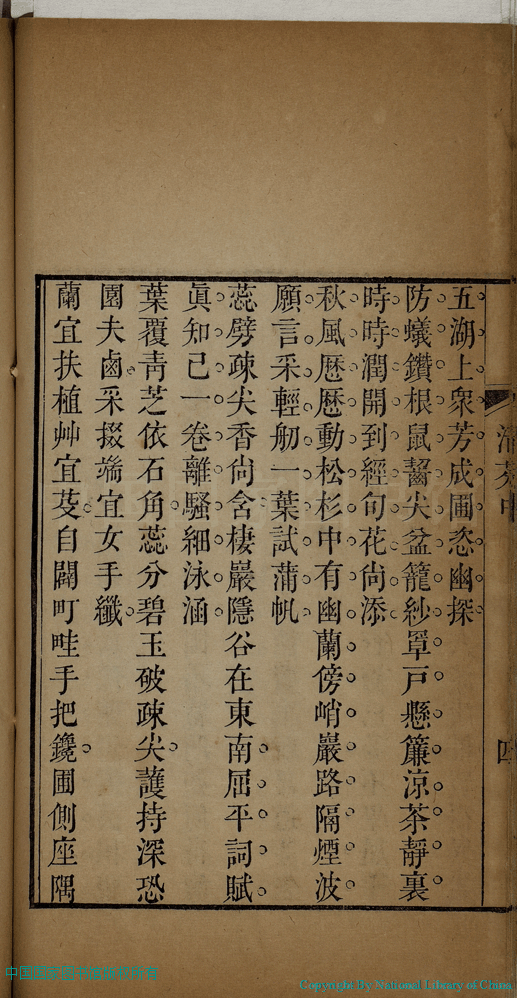 五湖上衆芳成圃恣幽探
防蟻鑽根鼠齧尖盆籠紗罩戸懸簾涼茶靜裏
時時潤開到經句花尙添
秋風歴歴動松杉中有幽蘭傍峭巖路隔煙波
願言采輕舠一葉試蒲帆
蕊劈疎尖香尙含棲巖隱谷在東南屈平詞賦
眞知己一卷離騷細泳涵
葉覆靑芝依石角蕊分碧玉破疎尖護持深恐
園夫鹵采掇端宜女手纖
蘭宜扶植艸宜芟自闢町畦手把鑱圃側座隅
四
Copyright By National Library of China